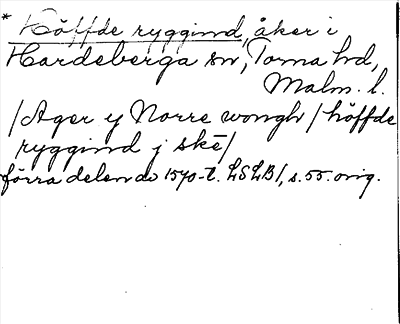 * Höffde ryggind, åker i
Hardeberga sn, Torna hd,
Malm. l.
/Ager y Norre wongh/höffde
ryggind j skē/
förra delen av 1570-t. LSLB1, s. 55. orig.